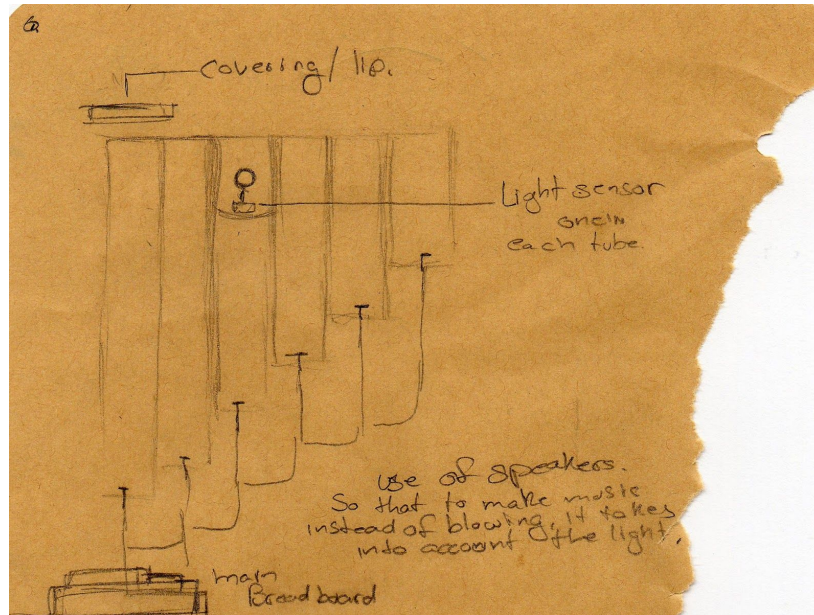 covering / lip.
Light sensor
one in
each tube.
use of speakers.
So that to make music
instead of blowing, it takes
into account the light.
main
Breadboard